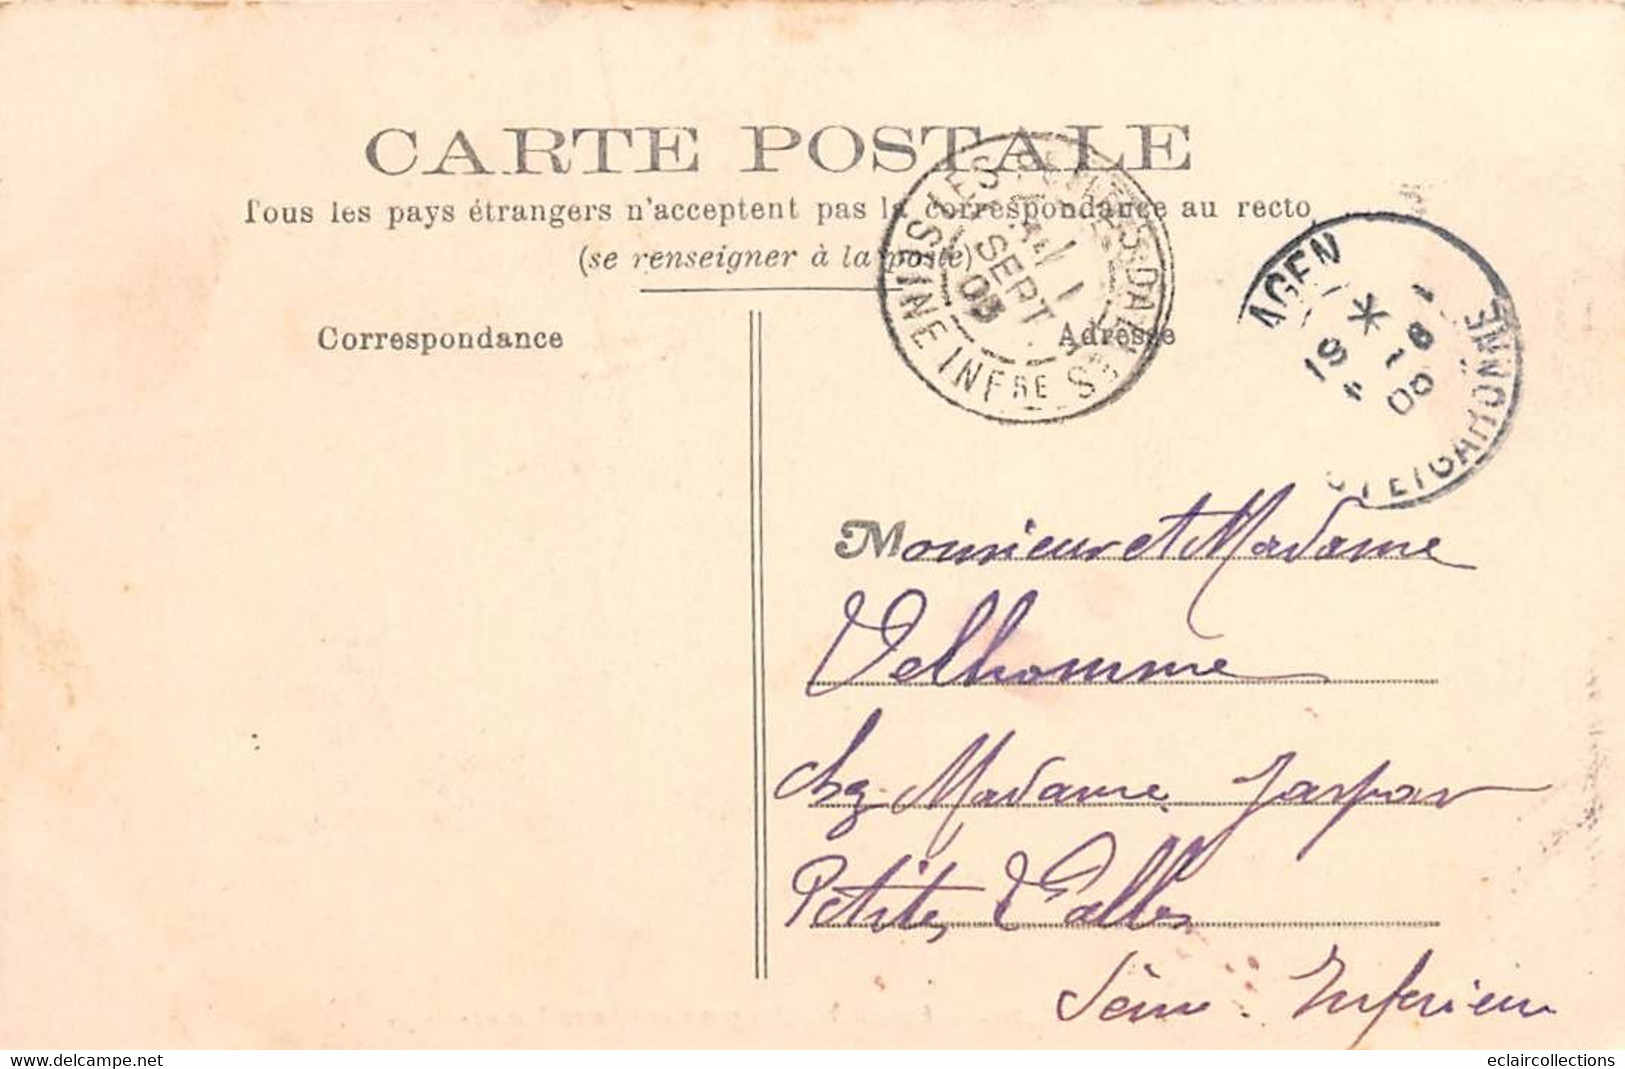 CARTE POSTALE
Tous les pays étrangers n'acceptent pas la correspondance au recto
(se renseigner à la poste)
Correspondance
Adresse
LES PETITES DALLES
SEPT
03
SEINE INFRE
AGEN
LOT ET GARONNE
Monsieur et Madame
Delhomme
chz Madame Jaspar
Petites Dalles
Seine Inférieure
www.delcampe.net
eclaircollections